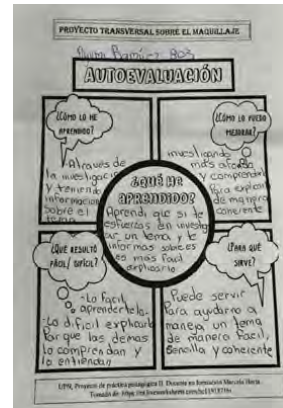 PROYECTO TRANSVERSAL SOBRE EL MAQUILLAJE
Ramirez 803
AUTOEVALUACIÓN
¿CÓMO LO HE
APRENDIDO?
Atraves de
la investigacion
y teniendo
informacion
sobre el
tema
¿CÓMO LO PUEDO
MEJORAR?
investigando
más afondo
y comprender
para explicar
de manera
coherente
¿QUÉ HE
APRENDIDO?
Aprendi que si te
esfuerzas en investig
ar un tema y te
informas sobre es
es mas facil
explicarlo
¿QUÉ RESULTÓ
FÁCIL/ DIFÍCIL?
-Lo facil
aprendertelo.
-Lo dificil explicarlo
Par que las demas
lo comprendan y
lo entiendan
¿PARA QUÉ
SIRVE?
Puede servir
Para ayudarno a
maneja un tema
de manera facil,
Sencilla y coherente
UPN, Proyecto de práctica pedagógica II. Docente en formación Marcela
Tomado de: https://es.liveworksheets.com